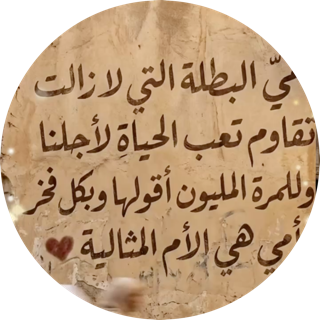 ميّ البطلة التي لازالت
تقاوم تعب الحياة لأجلنا
وللمرة المليون أقولها وبكل فخر
أمي هي الأم المثالية